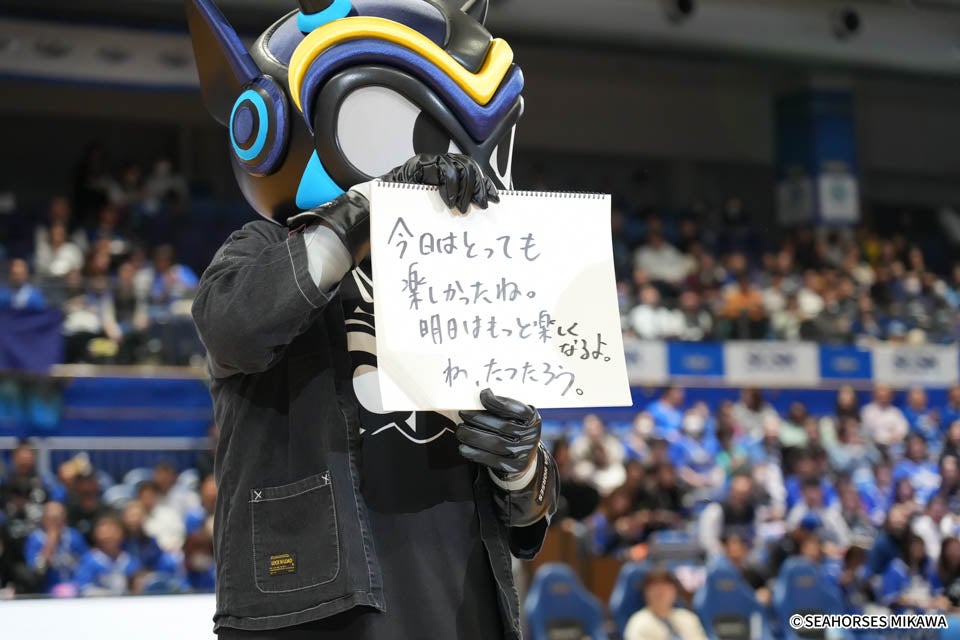 今日はとっても
楽しかったね。
明日はもっと楽しく
なるよ。
ね、たつたろう。
©SEAHORSES MIKAWA